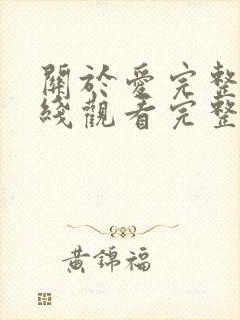 關於愛完整
綫觀看完整
黃錦福